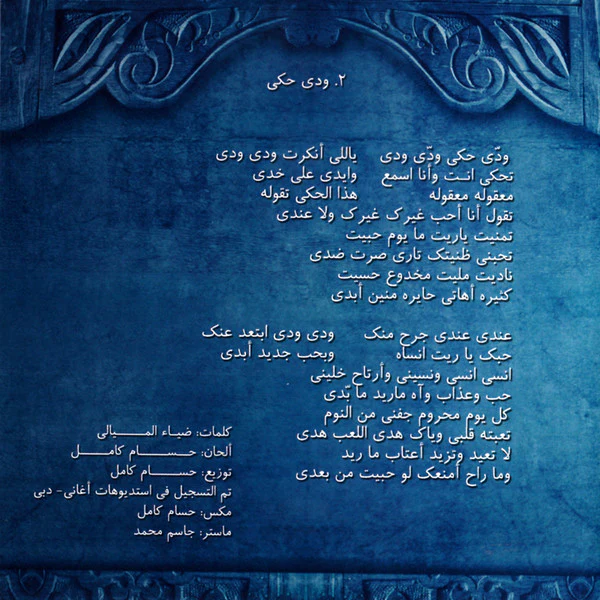 ٢. ودي حكي
ودّي حكي ودّي ودي ياللي أنكرت ودي ودي
تحكي انت وأنا اسمع وايدي على خدي
معقوله معقوله هذا الحكي تقوله
تقول أنا أحب غيرك غيرك ولا عندي
تمنيت ياريت ما يوم حبيت
تحبني ظنيتك تاري صرت ضدي
ناديت مليت مخدوع حسيت
كثيره أهاتي حايره منين أبدي
عندي عندي جرح منك ودي ودي ابتعد عنك
حبك يا ريت انساه وبحب جديد أبدي
انسى انسى ونسيني وأرتاح خليني
حب وعذاب وآه ماريد ما بّدي
كل يوم محروم جفني من النوم
تعبته قلبي وياك هدي اللعب هدي
لا تعيد وتزيد أعتاب ما ريد
وما راح أمنعك لو حبيت من بعدي
كلمات: ضياء الميالي
ألحان: حسام كامل
توزيع: حسام كامل
تم التسجيل في استديوهات أغاني- دبي
مكس: حسام كامل
ماستر: جاسم محمد